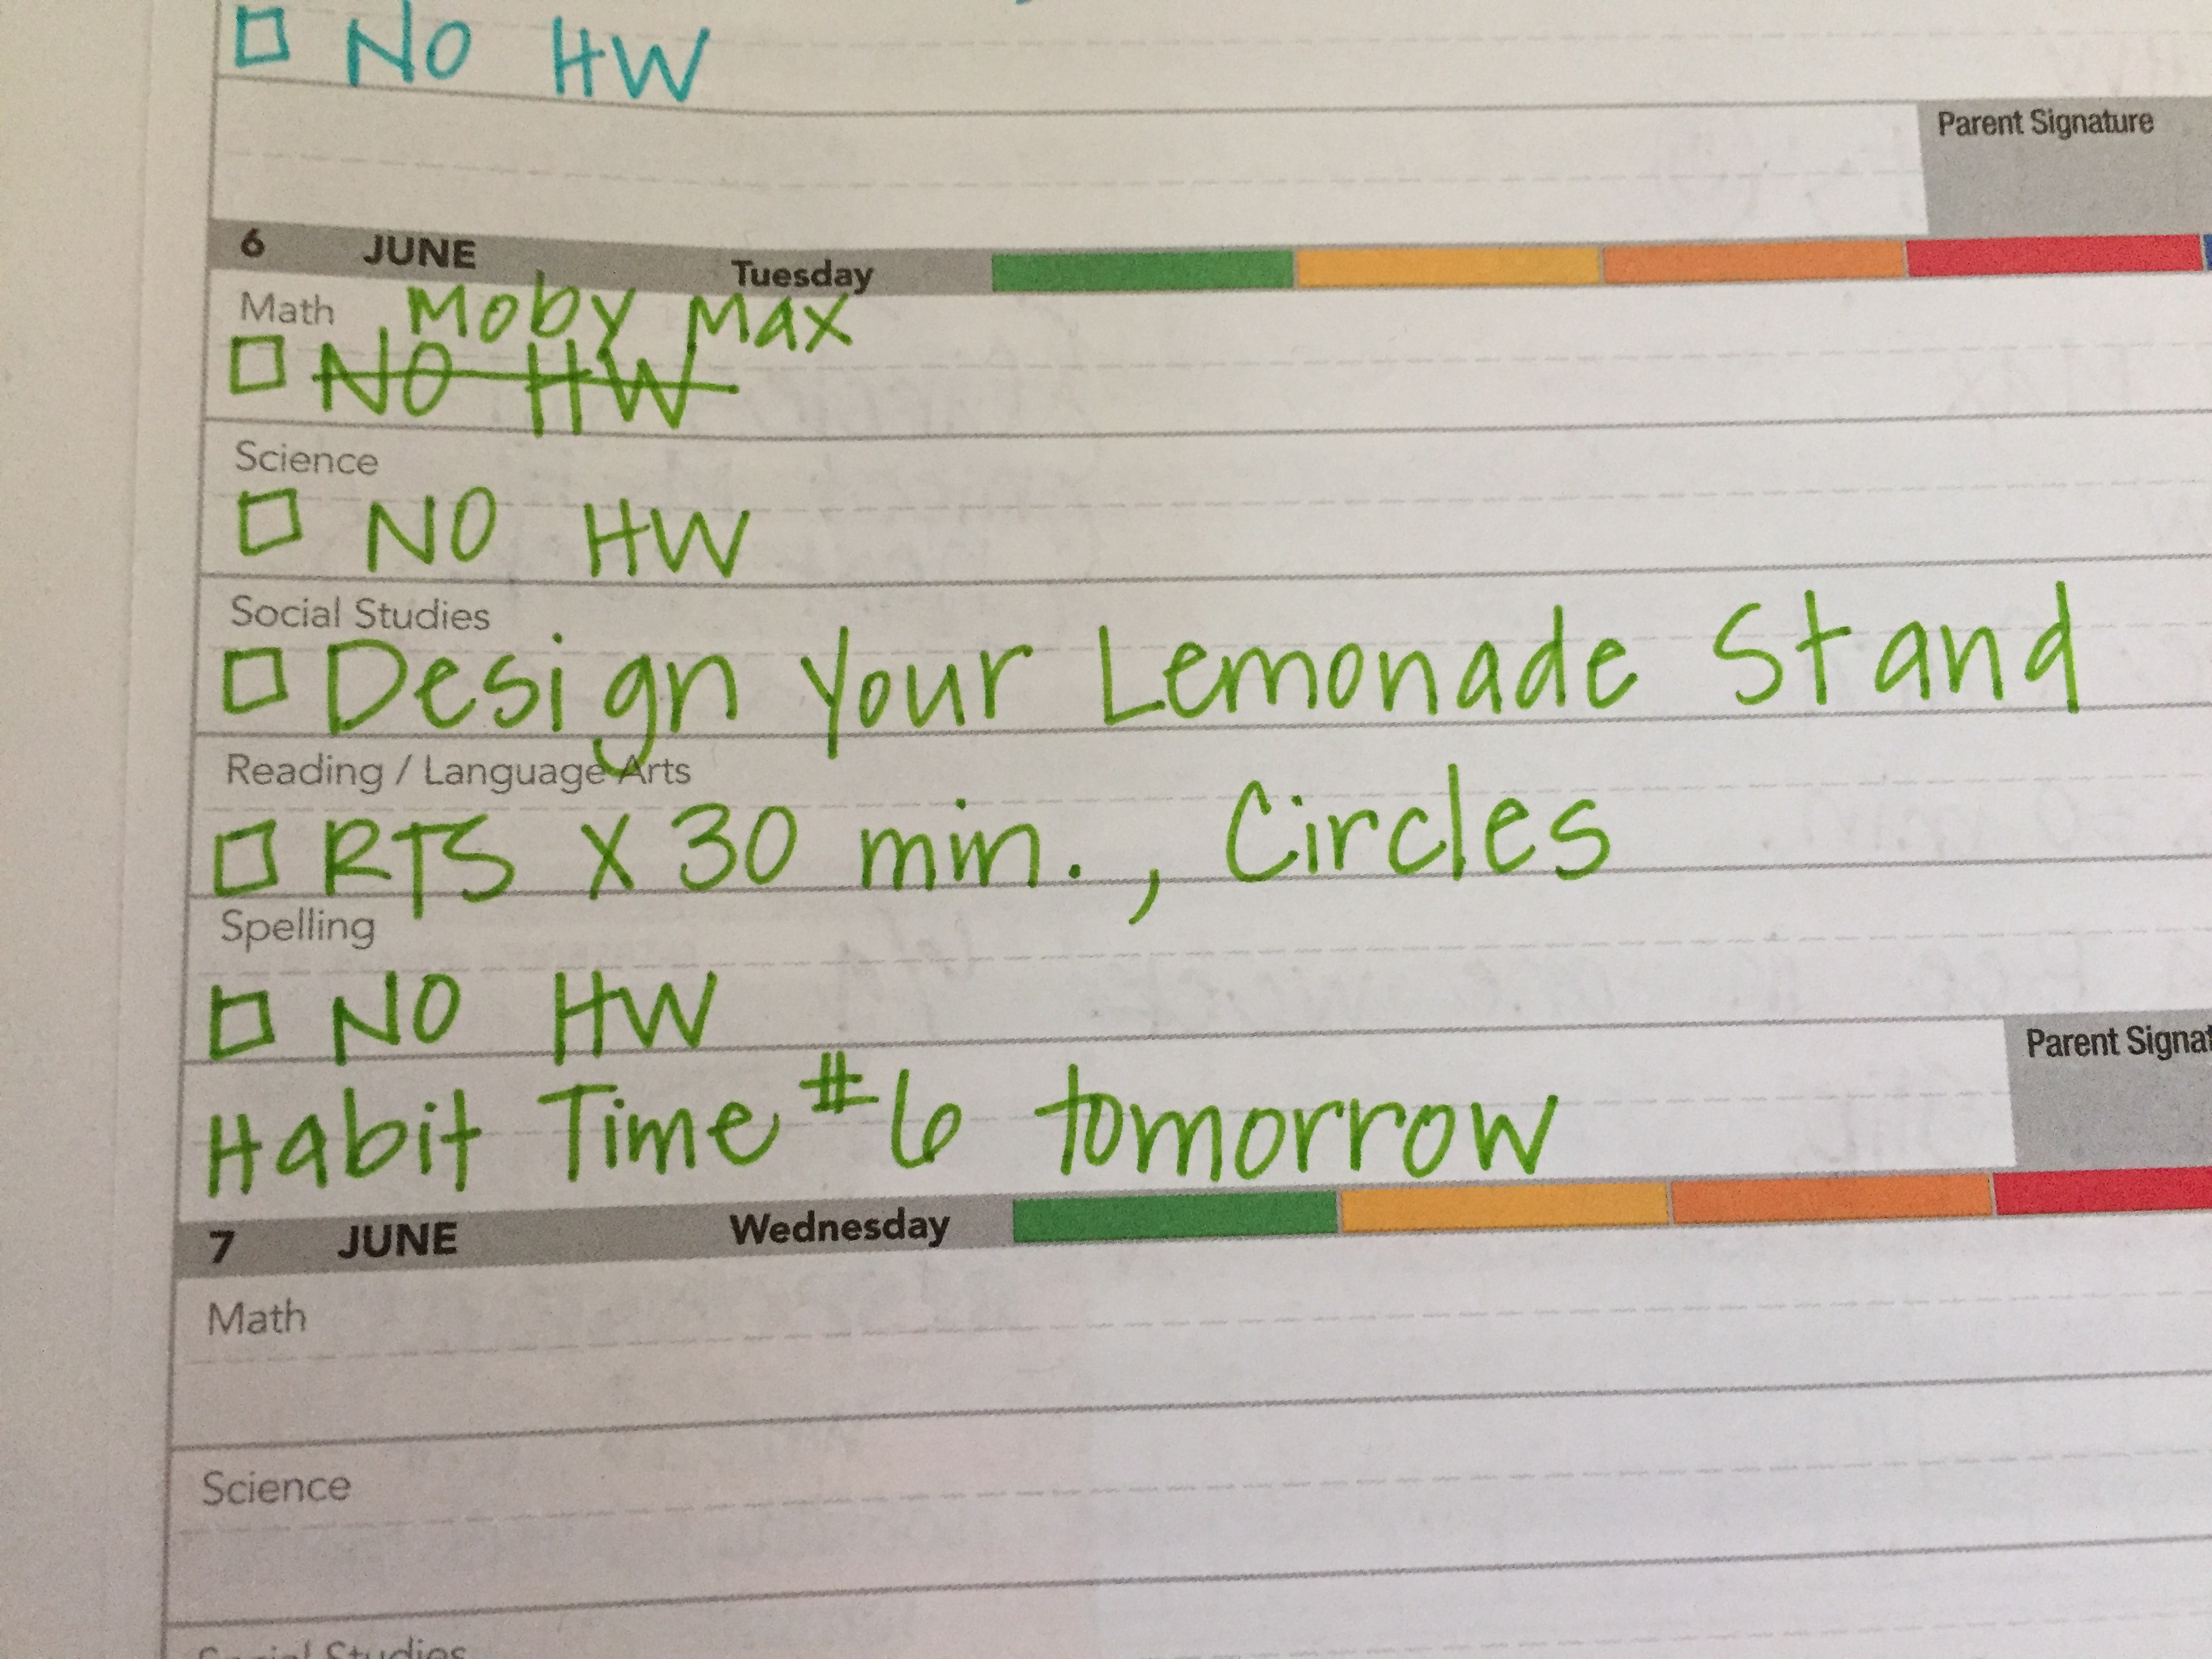 NO HW
Parent Signature
6 JUNE Tuesday
Math Moby Max
NO HW
Science
NO HW
Social Studies
Design Your Lemonade Stand
Reading / Language Arts
RTS X 30 min., Circles
Spelling
NO HW
Parent Signat
Habit Time #6 tomorrow
7 JUNE Wednesday
Math
Science
Social Studies